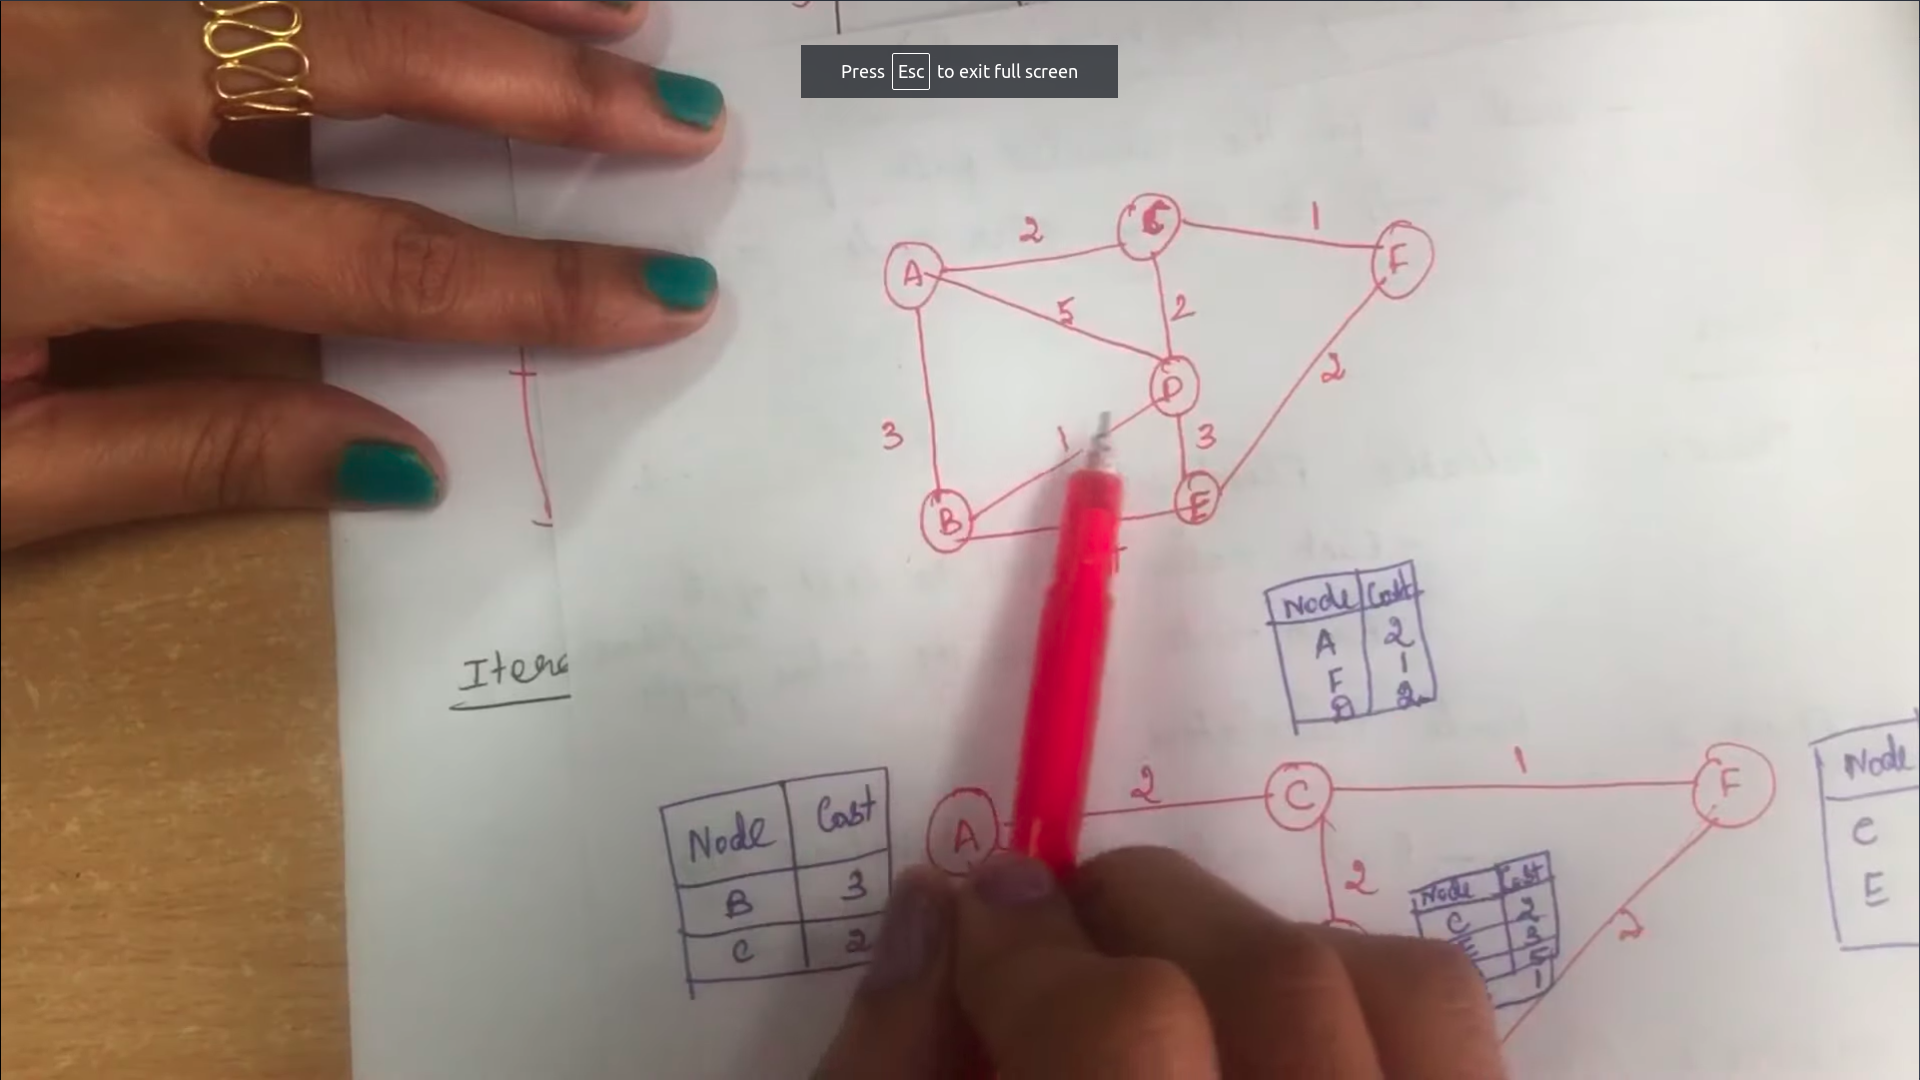 Press Esc to exit full screen
2
C
1
A
F
5
2
D
2
3
1
3
B
E
Node Cost
A 2
F 1
D 2
Itera
Node Cost
B 3
C 2
A
2
C
1
F
2
2
Node Cost
C 2
E 3
5
1
Node
C
E